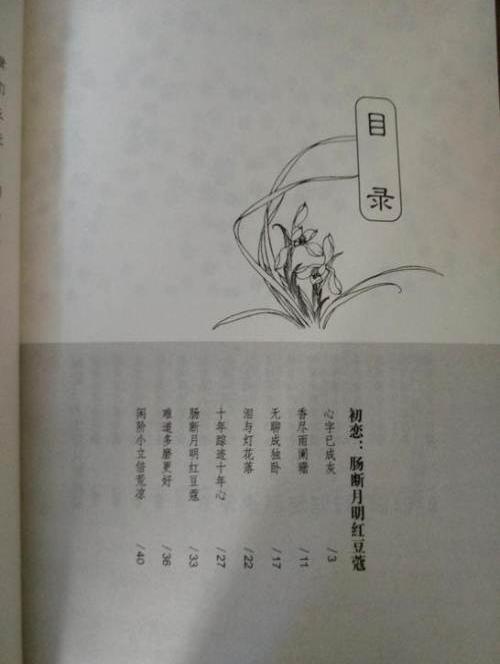 目录
初恋：肠断月明红豆蔻
心字已成灰 /3
香尽雨阑珊 /11
无聊成独卧 /17
泪与灯花落 /22
十年踪迹十年心 /27
肠断月明红豆蔻 /33
难道多磨更好 /36
闲阶小立倍荒凉 /40